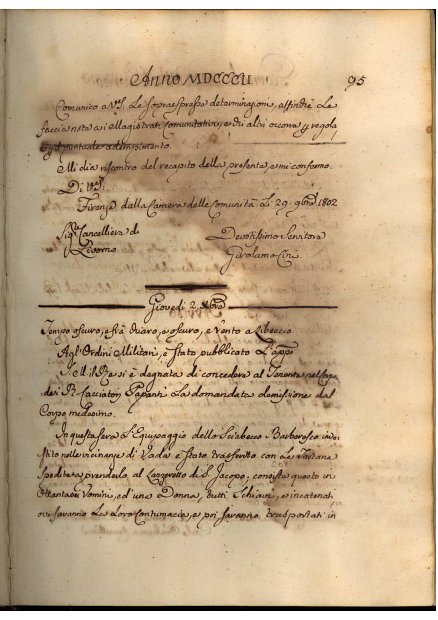 Anno MDCCCII 95
Comunico a V.S. Le sopraespresse determinazioni, affinchè Le
faccia note ai Magistrati Comunitativi, ed altri occorra p regola
e pel puntuale adempimento.
Mi dia riscontro del recapito della presente, e mi confermo
Di V.S.
Firenze dalla Camera delle Comunità Li 29. 9bre 1802
Sigre Cancelliere di Devotissimo Servitore
Livorno Girolamo
Giovedì 2. Xbre
Tempo oscuro, e frà chiaro, e oscuro, e Vento a Libeccio
Agl'Ordini Militari, è stato pubblicato L'appo
S.M. il Re si è degnata di concedere al Tenente nel Corpo
dei R. Cacciatori Papanti La domandata dimissione dal
Corpo medesimo.
In questa sera L'Equipaggio dello Sciabecco Barbaresco
nelle vicinanze di Vada è stato trasferito con Le
spedite a prenderla al Lazzeretto di S. Jacopo; consiste questo in
Ottantasei Uomini, ed una Donna, tutti Schiavi, e incatenati,
ove faranno La Loro Contumacia, e poi saranno trasportati in